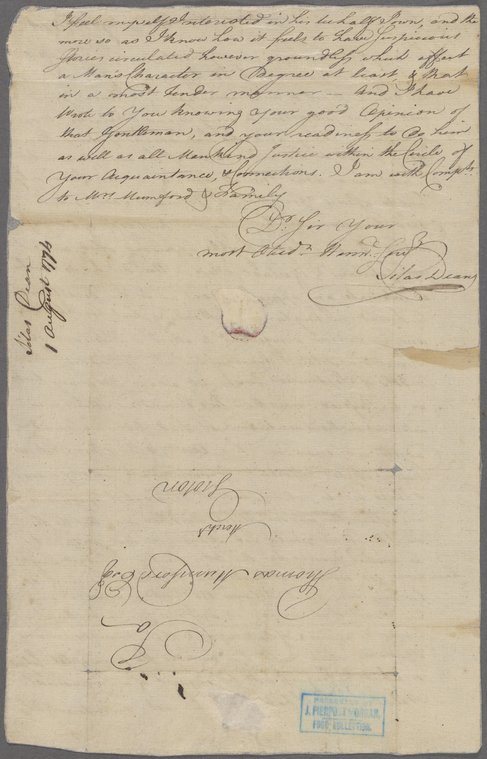 I feel myself Interested in his behalf I own, and the
more so as I know how it feels to have Suspicious
Stories circulated however groundless which affect
a Man's Character in Degree at least, & that
in a most tender manner — and I have
Wrote to You knowing Your good Opinion of
that Gentleman, and your readiness to do him
as well as all Mankind Justice within the Circle of
Your Acquaintance, & Connections. I am with Compts.
to Mrs. Mumford & Family
Dr. Sir Your
most Obedt. Humle. Servt.
Silas Deane
Silas Dean
1 August 1774
To
Thomas Mumford Esqr.
Mercht.
Groton
J. PIERPONT MORGAN
FORD COLLECTION.